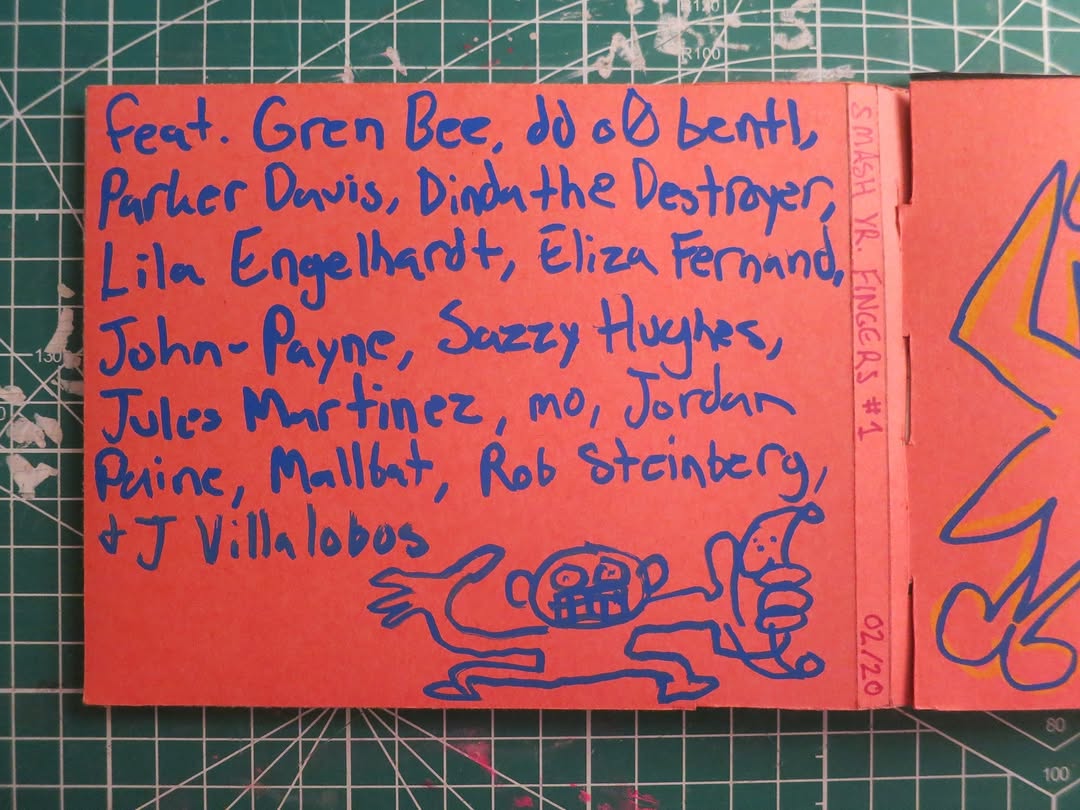 feat. Gren Bee, dd oØ bentl,
Parker Davis, Dinda the Destroyer,
Lila Engelhardt, Eliza Fernand,
John-Payne, Sazzy Hughes,
Jules Martinez, mo, Jordan
Paine, Mallbat, Rob Steinberg,
& J Villalobos
SMASH YR. FINGERS #1
02/20
R100
130
80
100